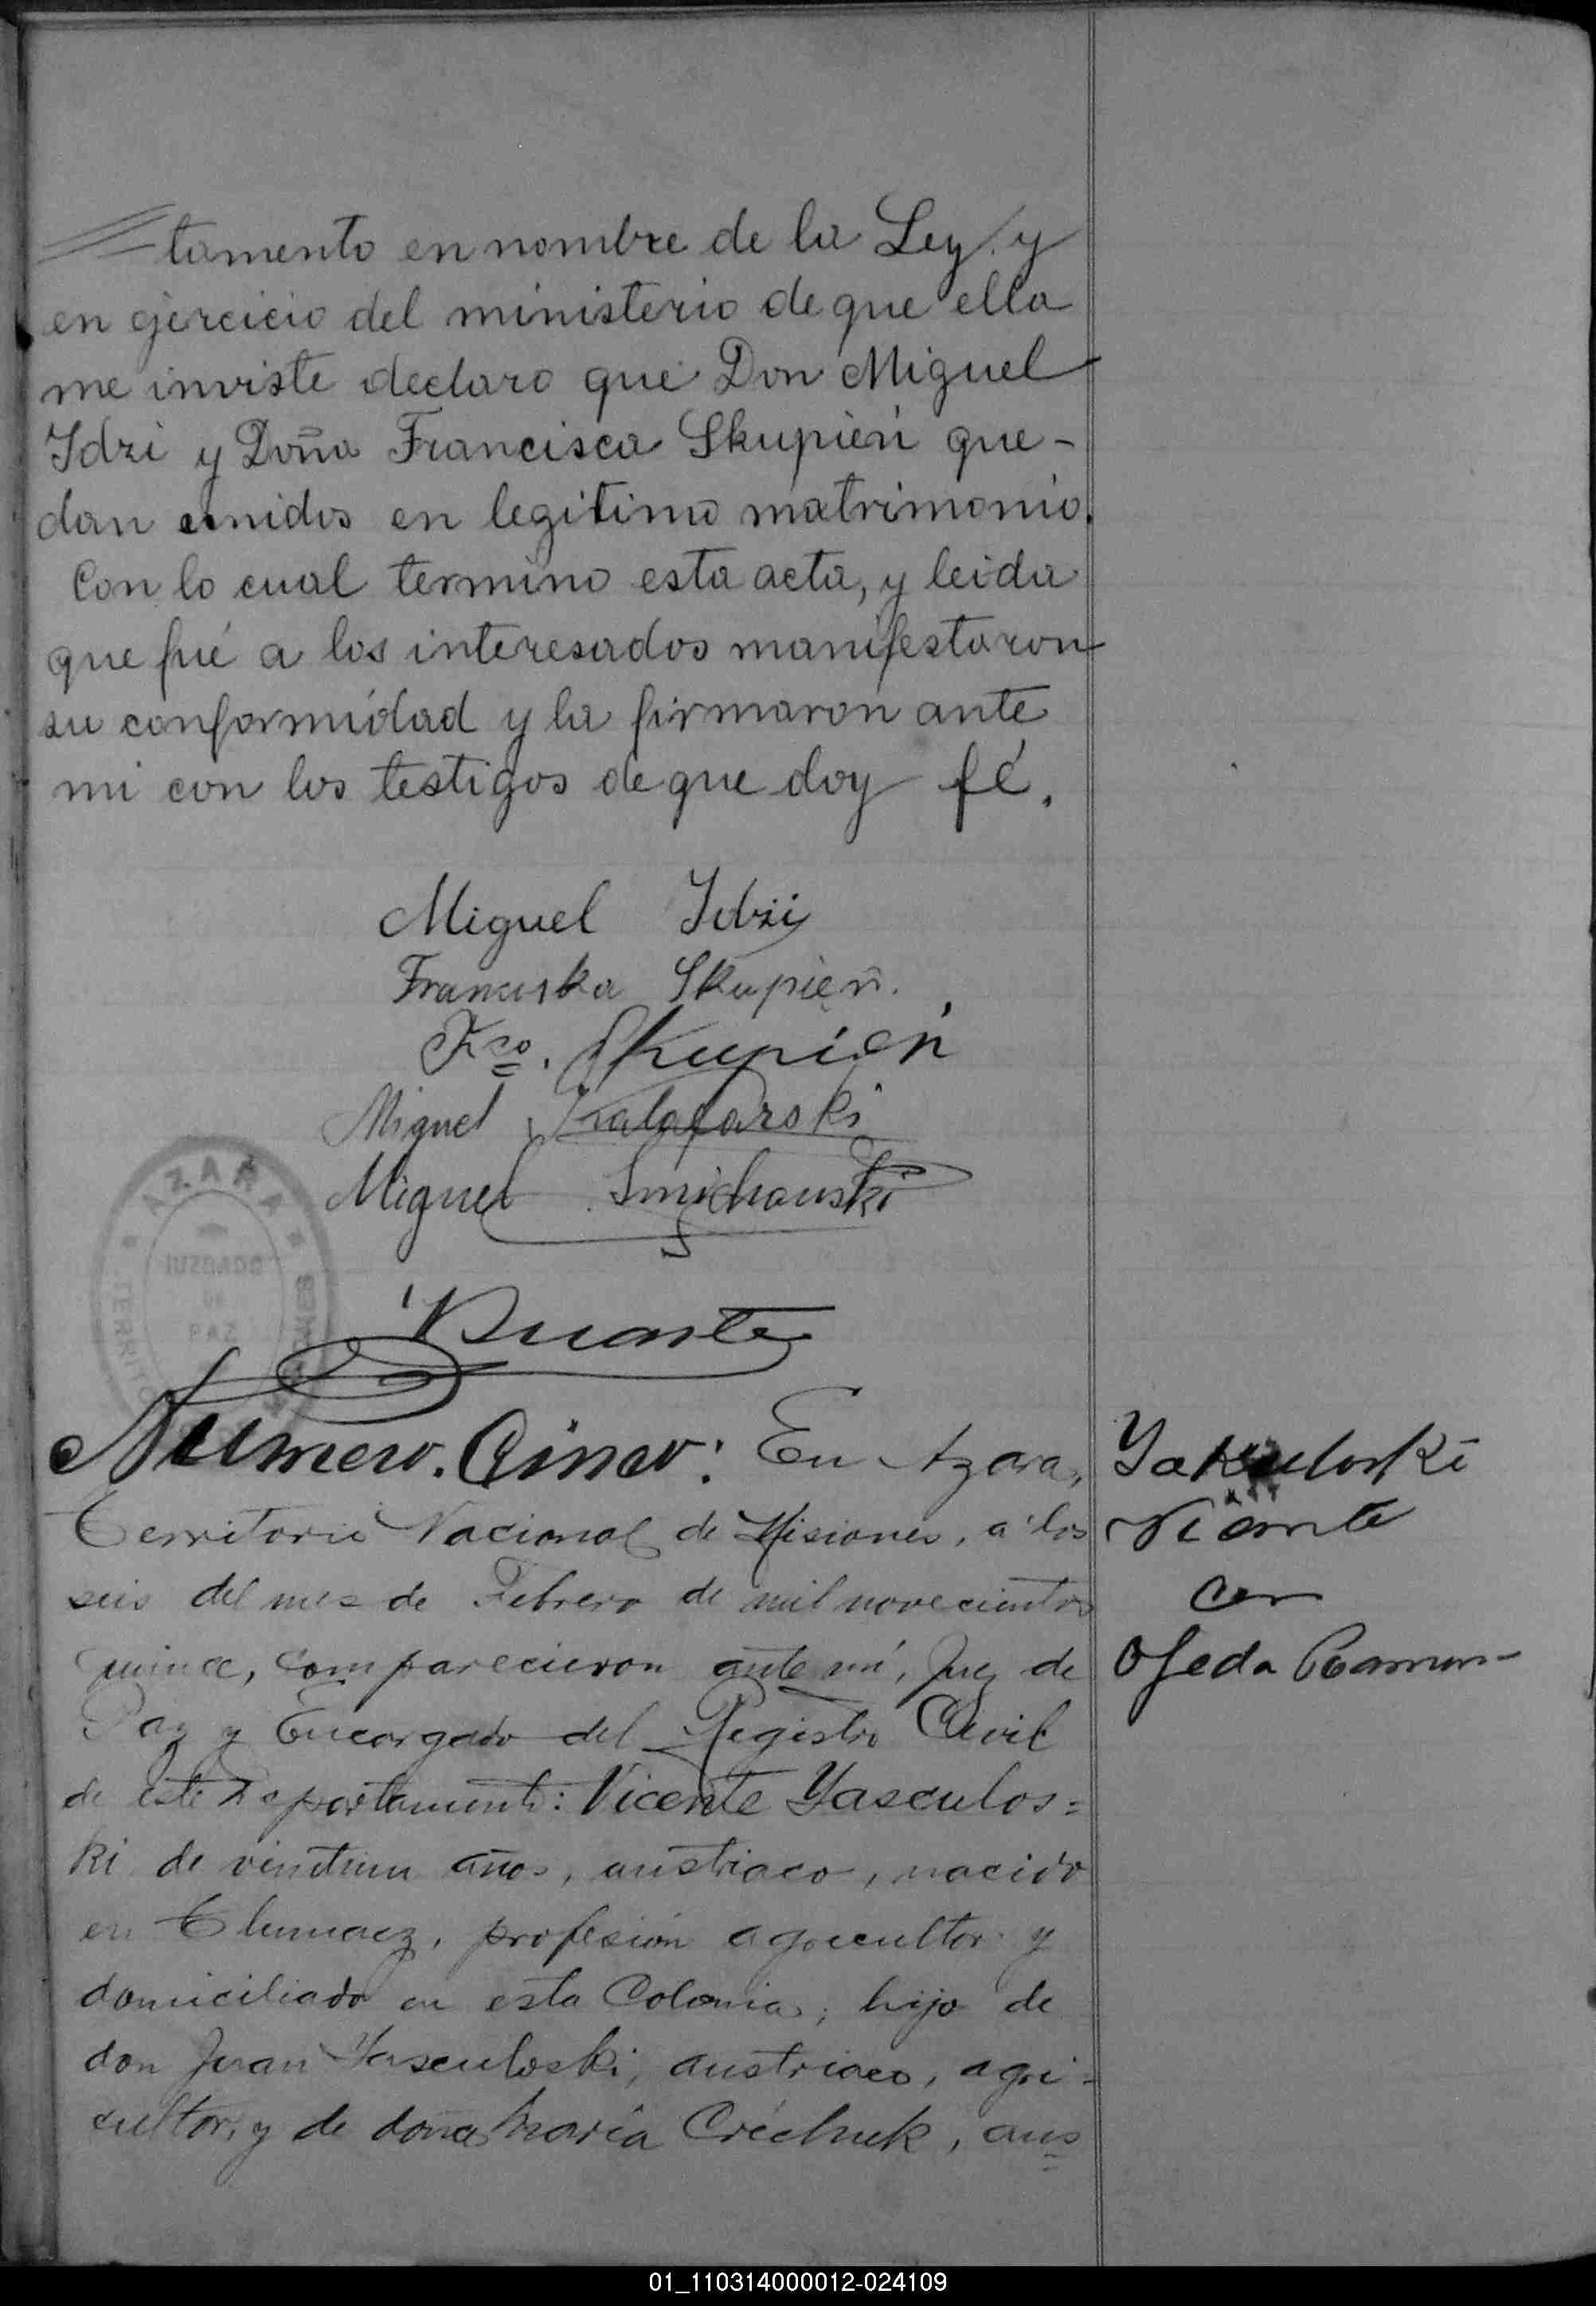 tamento en nombre de la Ley y
en ejercicio del ministerio de que ella
me inviste declaro que Don Miguel
Idzi y Doña Francisca Skupień que-
dan unidos en legitimo matrimonio.
Con lo cual termino esta acta, y leida
que fué a los interesados manifestaron
su conformidad y la firmaron ante
mi con los testigos de que doy fé.
Miguel Idzi
Franciska Skupień.
Fco. Skupień
Miguel Kalafarski
Miguel Smichouski
AZARA
JUZGADO
DE
PAZ
TERRITO
Duarte
Numero Cinco: En Azara,
Territorio Nacional de Misiones, a los
seis del mes de Febrero de mil novecientos
quince, comparecieron ante mí, Juez de
Paz y Encargado del Registro Civil
de este Departamento: Vicente Yasculos=
ki de veintiun años, austriaco, nacido
en Tlumacz, profesión agricultor y
domiciliado en esta Colonia; hijo de
don Juan Yasculoski, austriaco, agri=
cultor, y de doña María Créchuk, aus=
Yakuloski
Vicente
con
Ojeda Ramon-
01_110314000012-024109